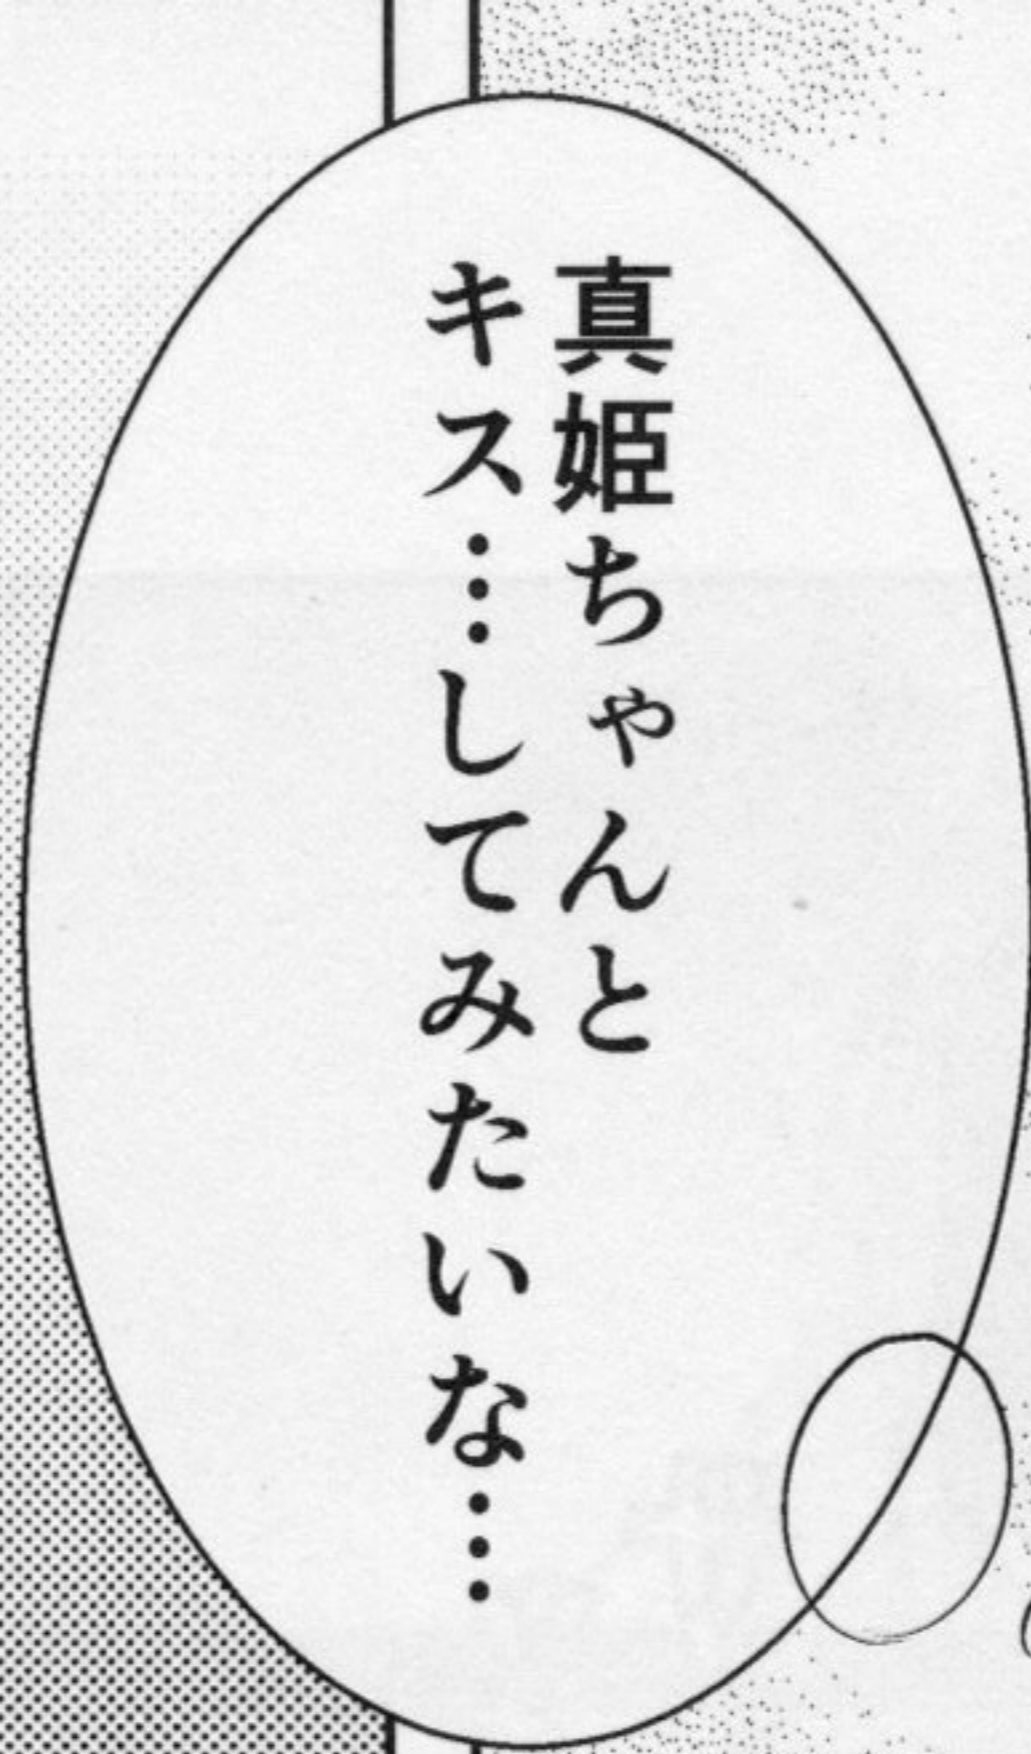 真姫ちゃんと
キス…してみたいな…